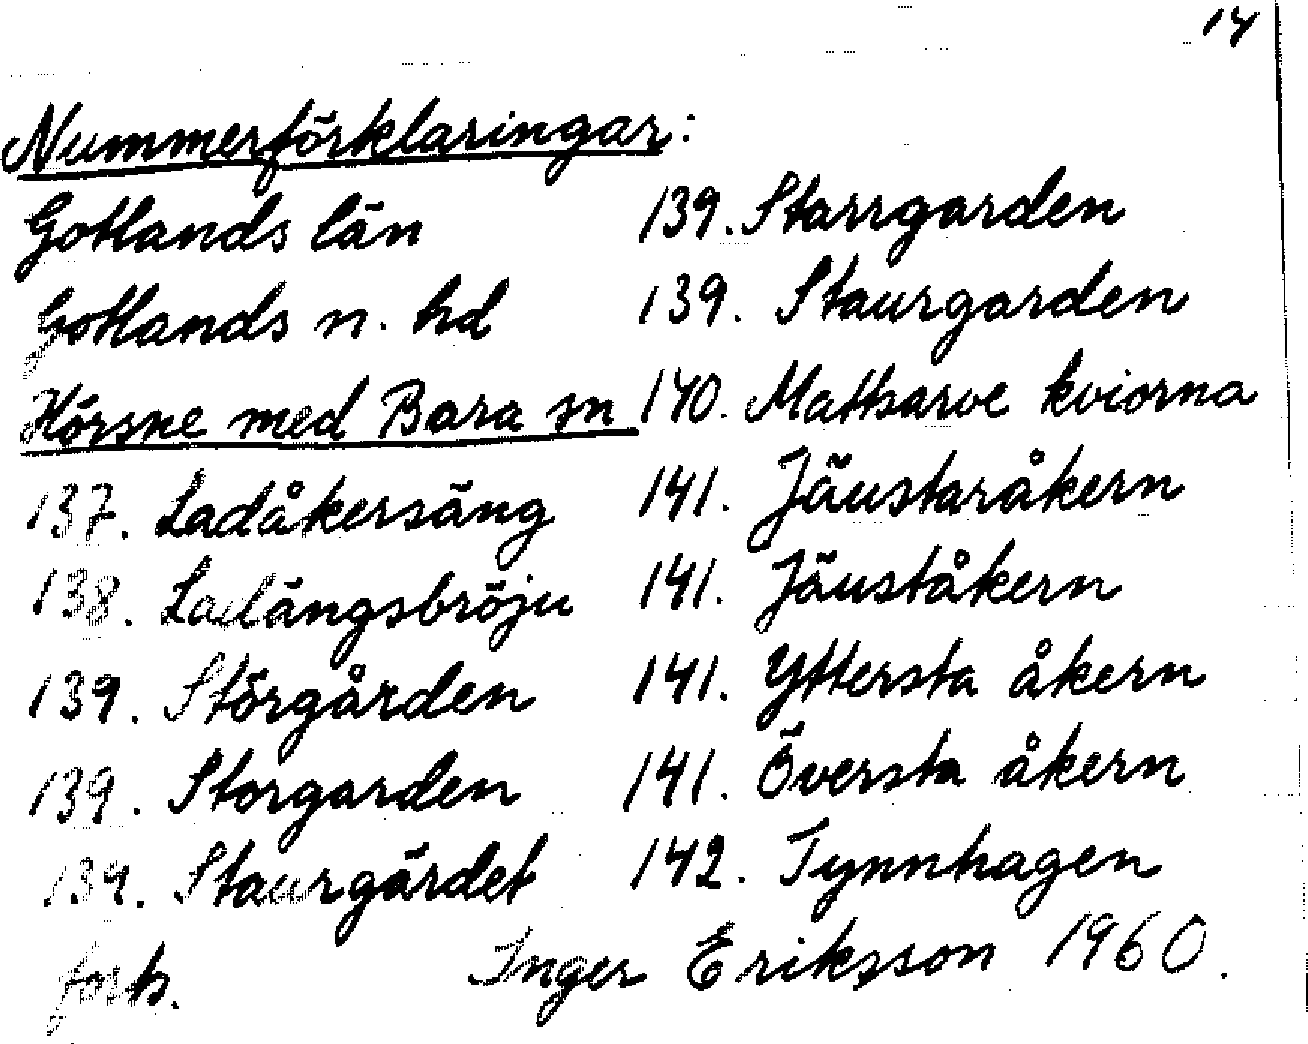 14
Nummerförklaringar:
Gotlands län
Gotlands n. hd
Hörsne med Bara sn
137. Ladåkersäng
138. Ladängsbröju
139. Störgården
139. Storgarden
139. Staurgärdet
forts.
139. Starrgarden
139. Staurgarden
140. Mattsarve kviorna
141. Jäustaråkern
141. Jäuståkern
141. Yttersta åkern
141. Översta åkern
142. Tynnhagen
Inger Eriksson 1960.